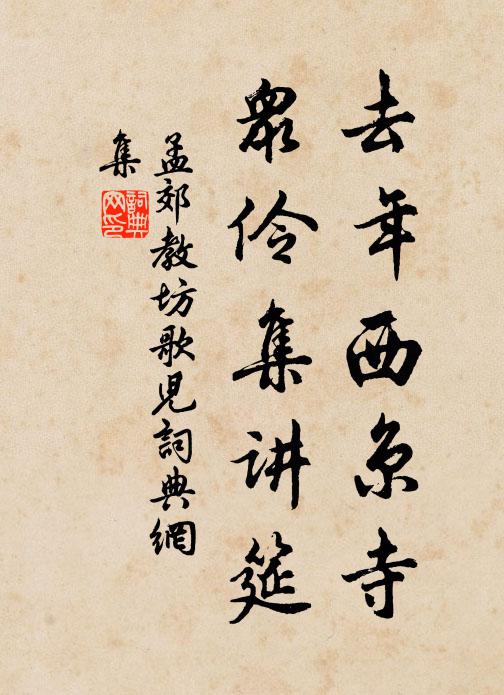 去年西京寺
眾伶集讲筵
孟郊教坊歌兒詞典網
集
詞典网印